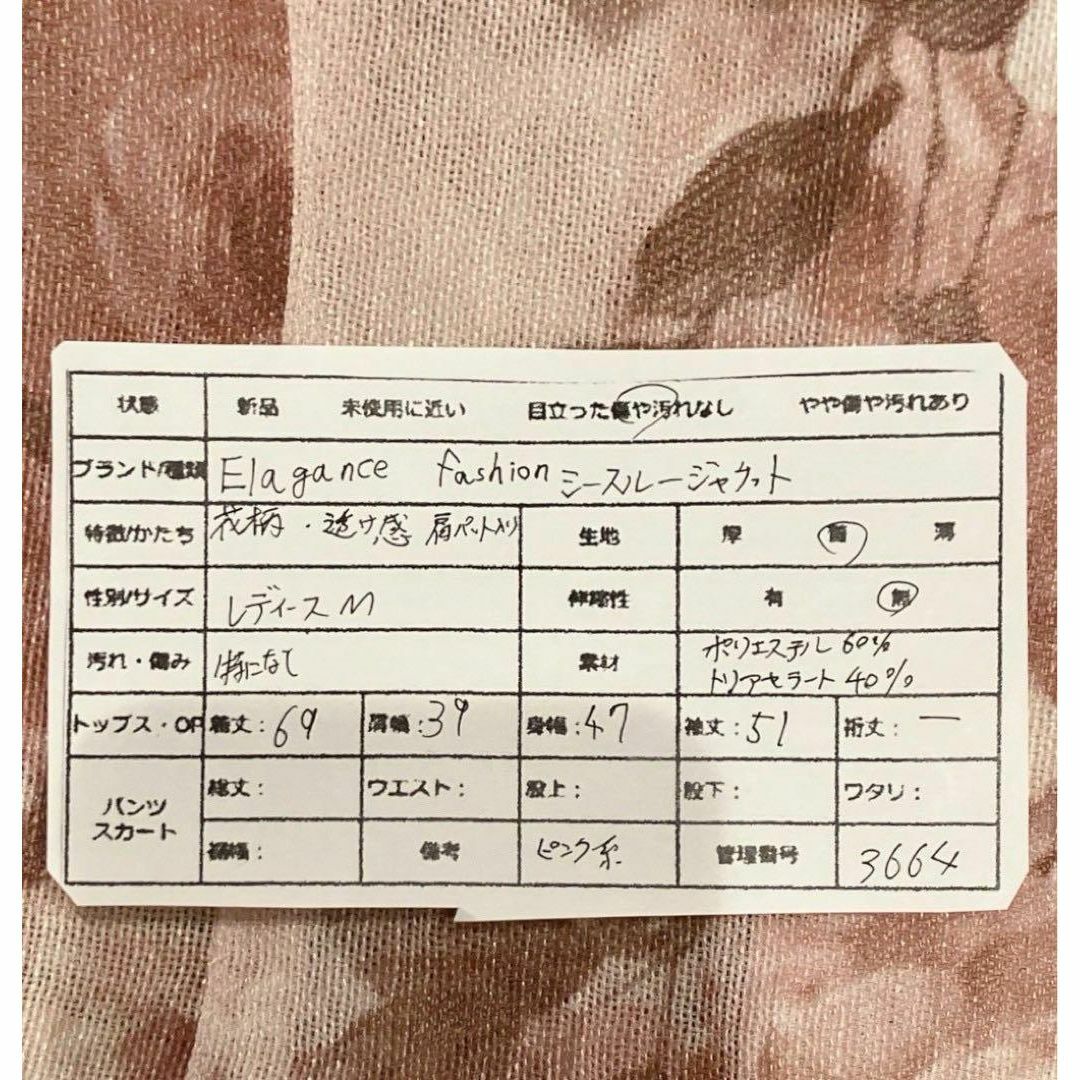 状態 新品 未使用に近い 目立った傷や汚れなし やや傷や汚れあり
ブランド/種類 Elagance fashion シースルージャケット
特徴/かたち 花柄・透け感 肩パット入り 生地 厚 普 薄
性別/サイズ レディース M 伸縮性 有 無
汚れ・傷み 特になし 素材 ポリエステル 60%
トリアセラート 40%
トップス・OP 着丈:69 肩幅:39 身幅:47 袖丈:51 裄丈:ー
パンツ
スカート
総丈: ウエスト: 股上: 股下: ワタリ:
裾幅: 備考 ピンク系 管理番号 3664